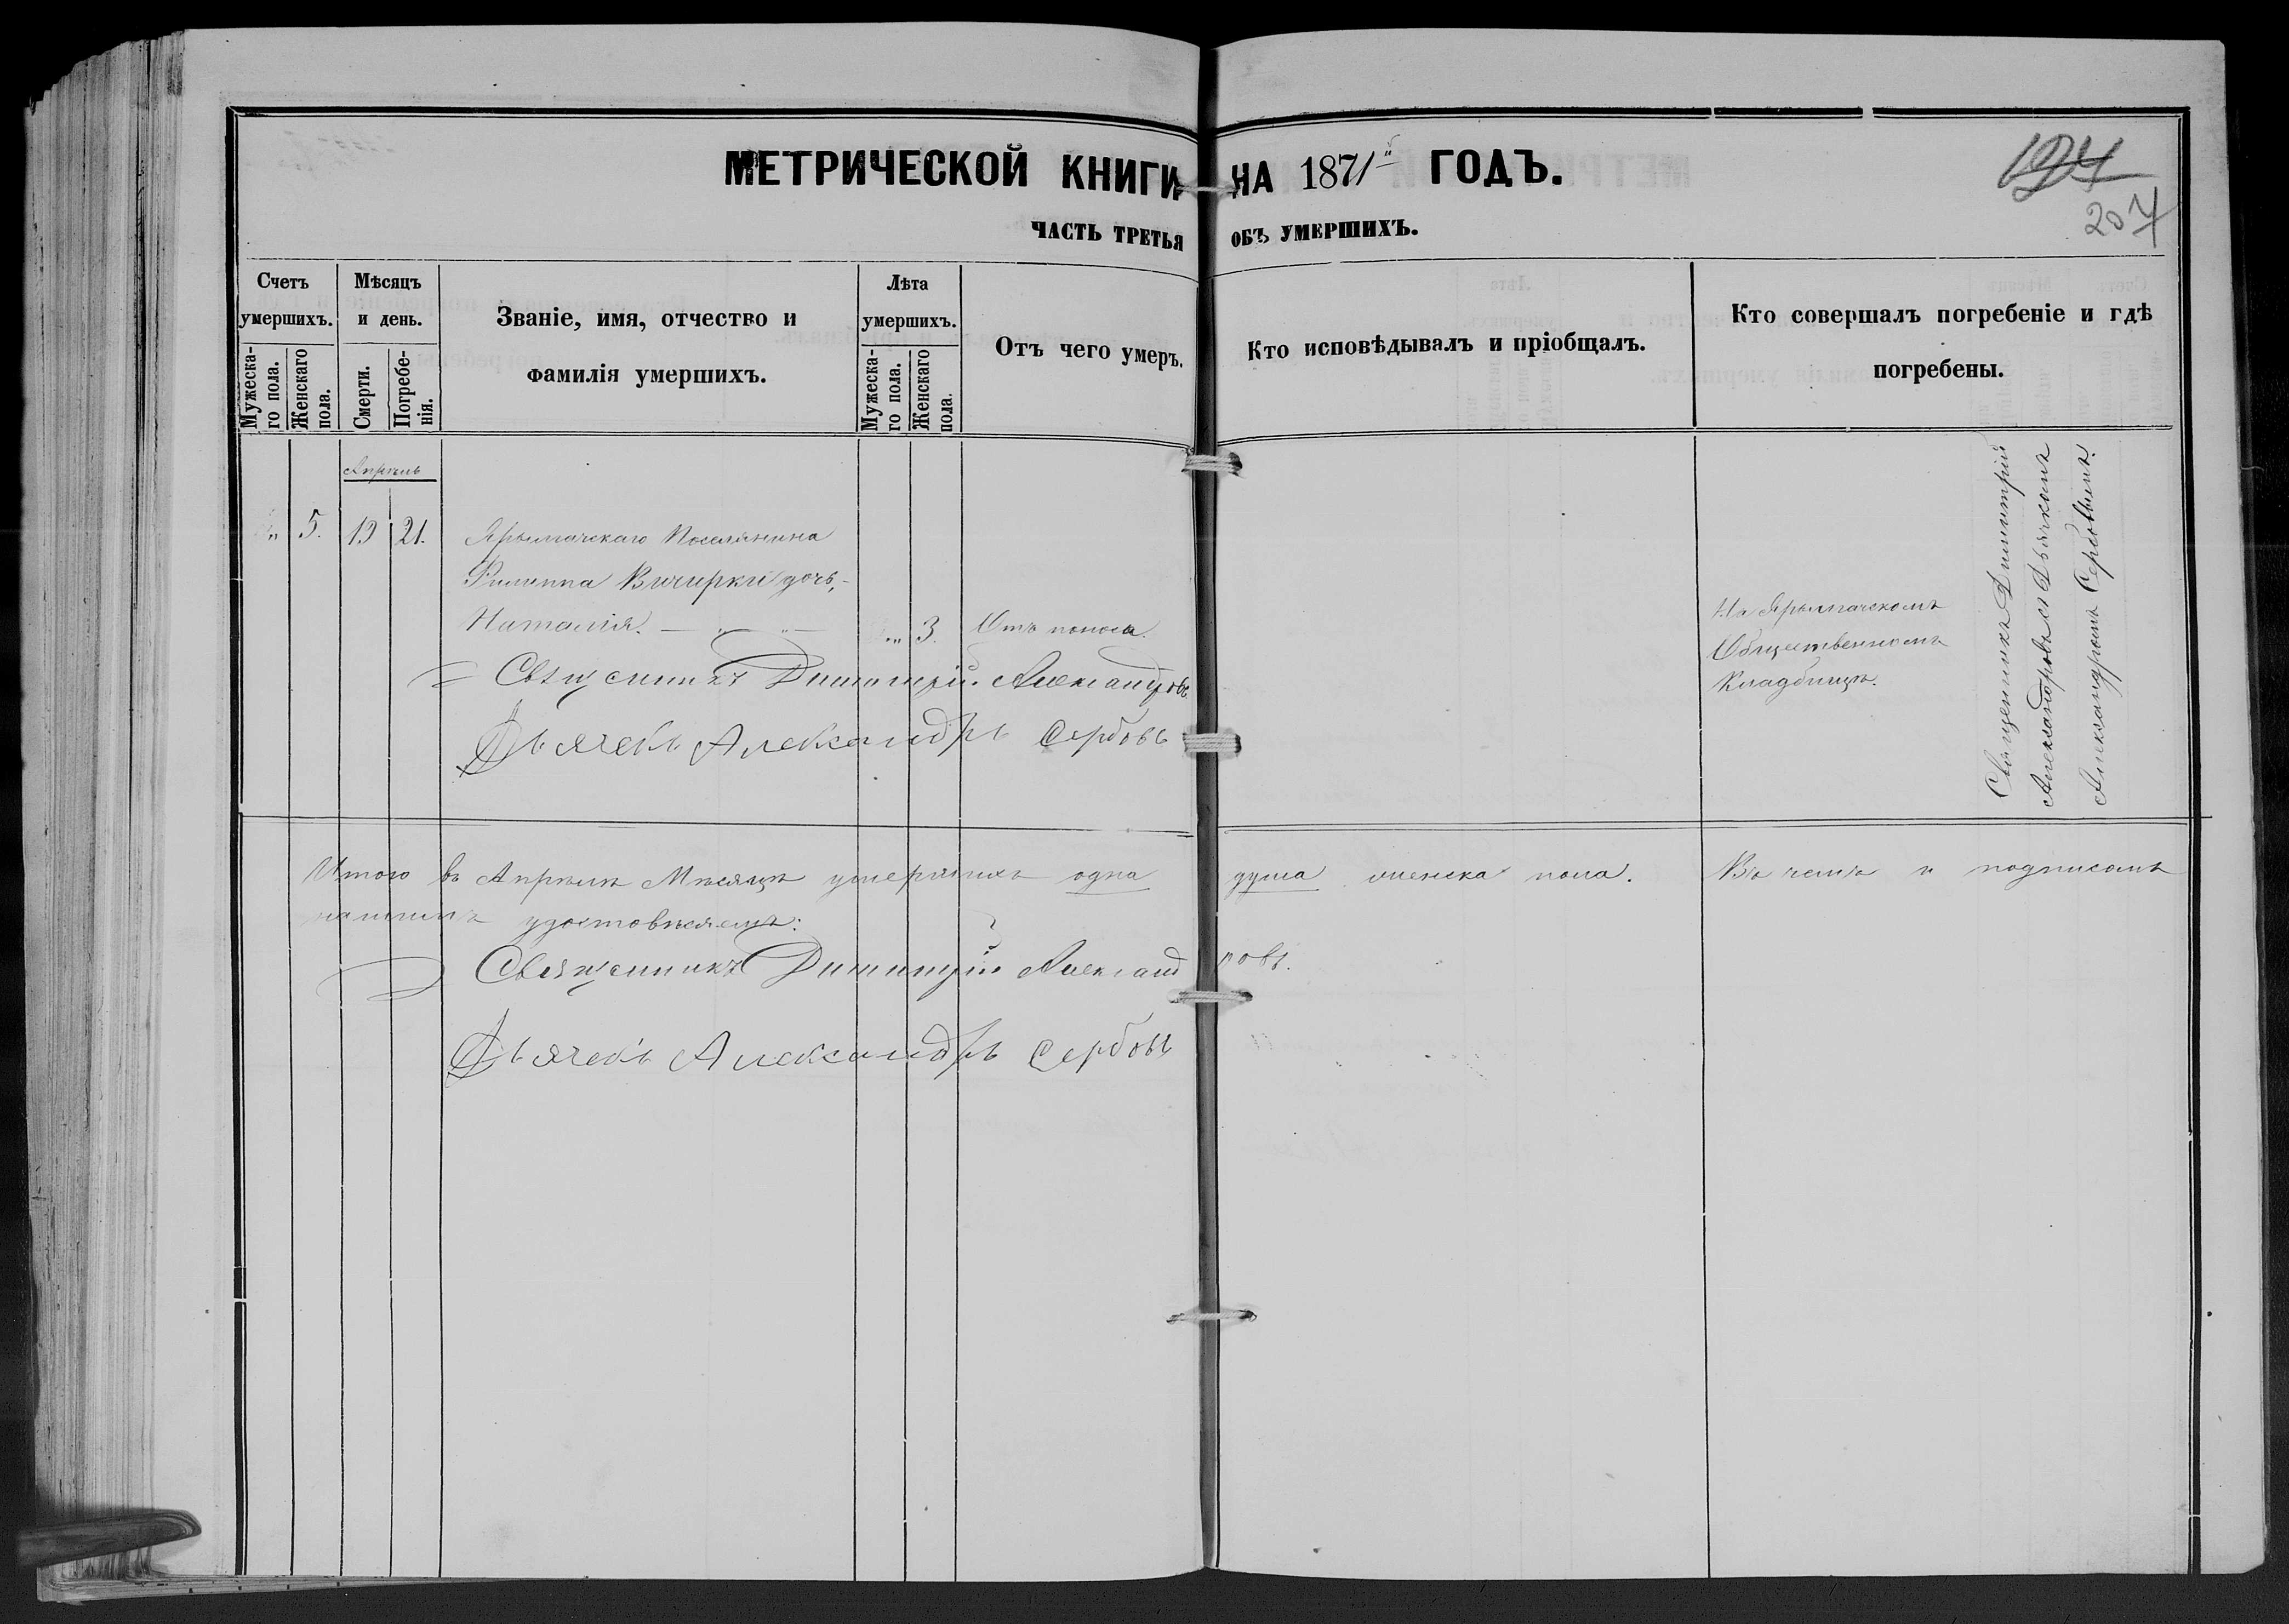 МЕТРИЧЕСКОЙ КНИГИ НА 1871й ГОДЪ.
194
207
ЧАСТЬ ТРЕТЬЯ ОБЪ УМЕРШИХЪ.
Счетъ умершихъ.
Мужеска-го пола.
Женскаго пола.
Мѣсяцъ и день.
Смерти.
Погребе-нія.
Званіе, имя, отчество и
фамилія умершихъ.
Лѣта умершихъ.
Мужеска-го пола.
Женскаго пола.
Отъ чего умеръ.
Кто исповѣдывалъ и пріобщалъ.
Кто совершалъ погребеніе и гдѣ
погребены.
Апрѣль
„ 5. 19 21. Ярымачскаго Поселянина
Филиппа Вичирки дочь,
Наталія. — „ — „ — „ 3. Отъ поноса.
Священникъ Димитрій Александровъ
Дьячекъ Александръ Сербовъ
На Ярымачскомъ
Общественномъ
Кладбищѣ.
Священникъ Димитрій
Александровъ съ Дьячкомъ
Александромъ Сербовымъ.
Итого въ Апрѣлѣ Мѣсяцѣ умершихъ одна душа женска пола. Въ чемъ и подписомъ
нашимъ удостовѣряемъ:
Священникъ Димитрій Александровъ.
Дьячекъ Александръ Сербовъ